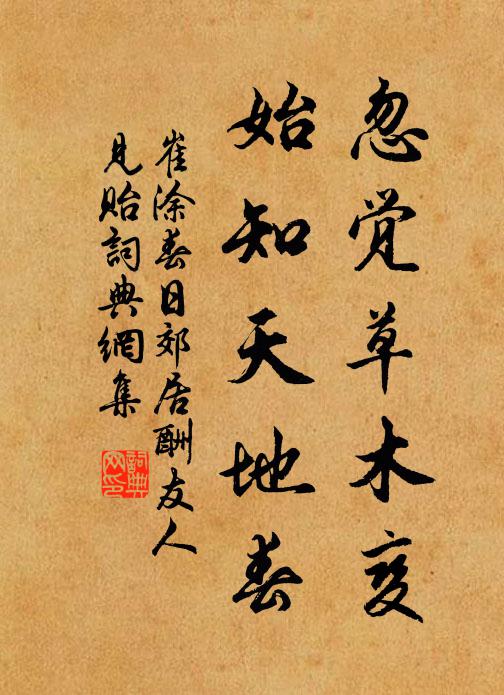 忽觉草木变
始知天地春
崔涂春日郊居酬友人
见贻詞典網集
詞典
网印